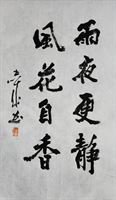 雨夜更静
風花自香